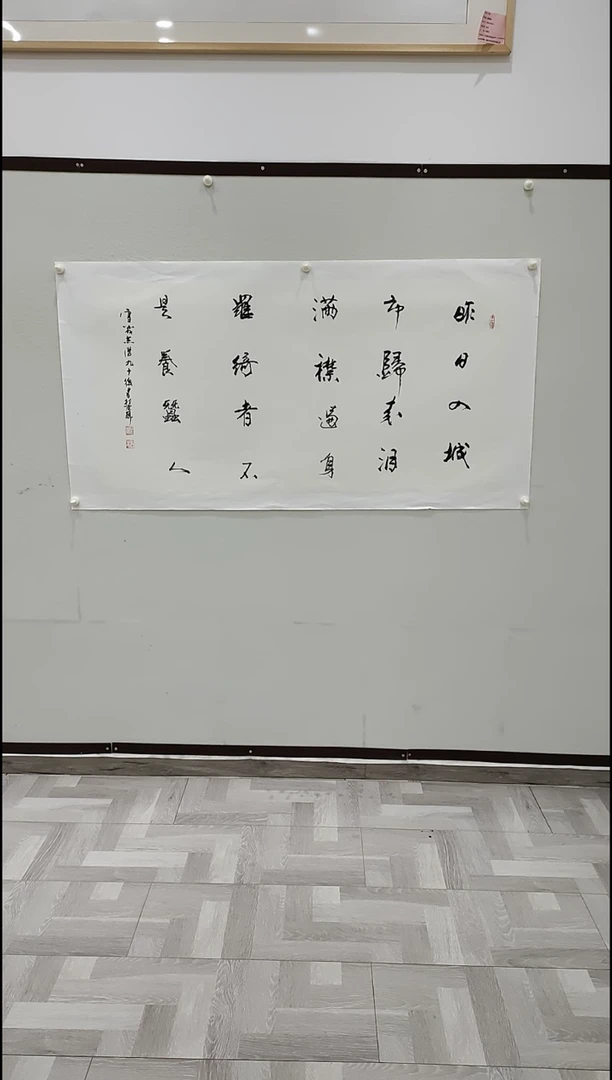 昨日入城
市歸来泪
滿襟遍身
羅綺者不
是養蠶人